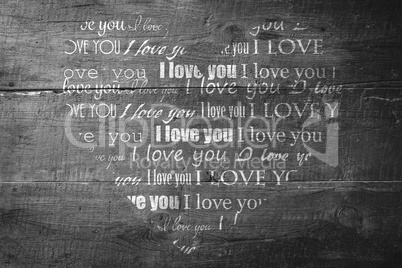 ve you I love
OVE YOU I love yo you I LOVE
ove you I love you I love you I
love you I love you I love you I love
OVE YOU I love you I love you I LOVE Y
ve you I love you I love you
love you I love you I love yo
you I love you I LOVE YO
ve you I love you
I love you
you